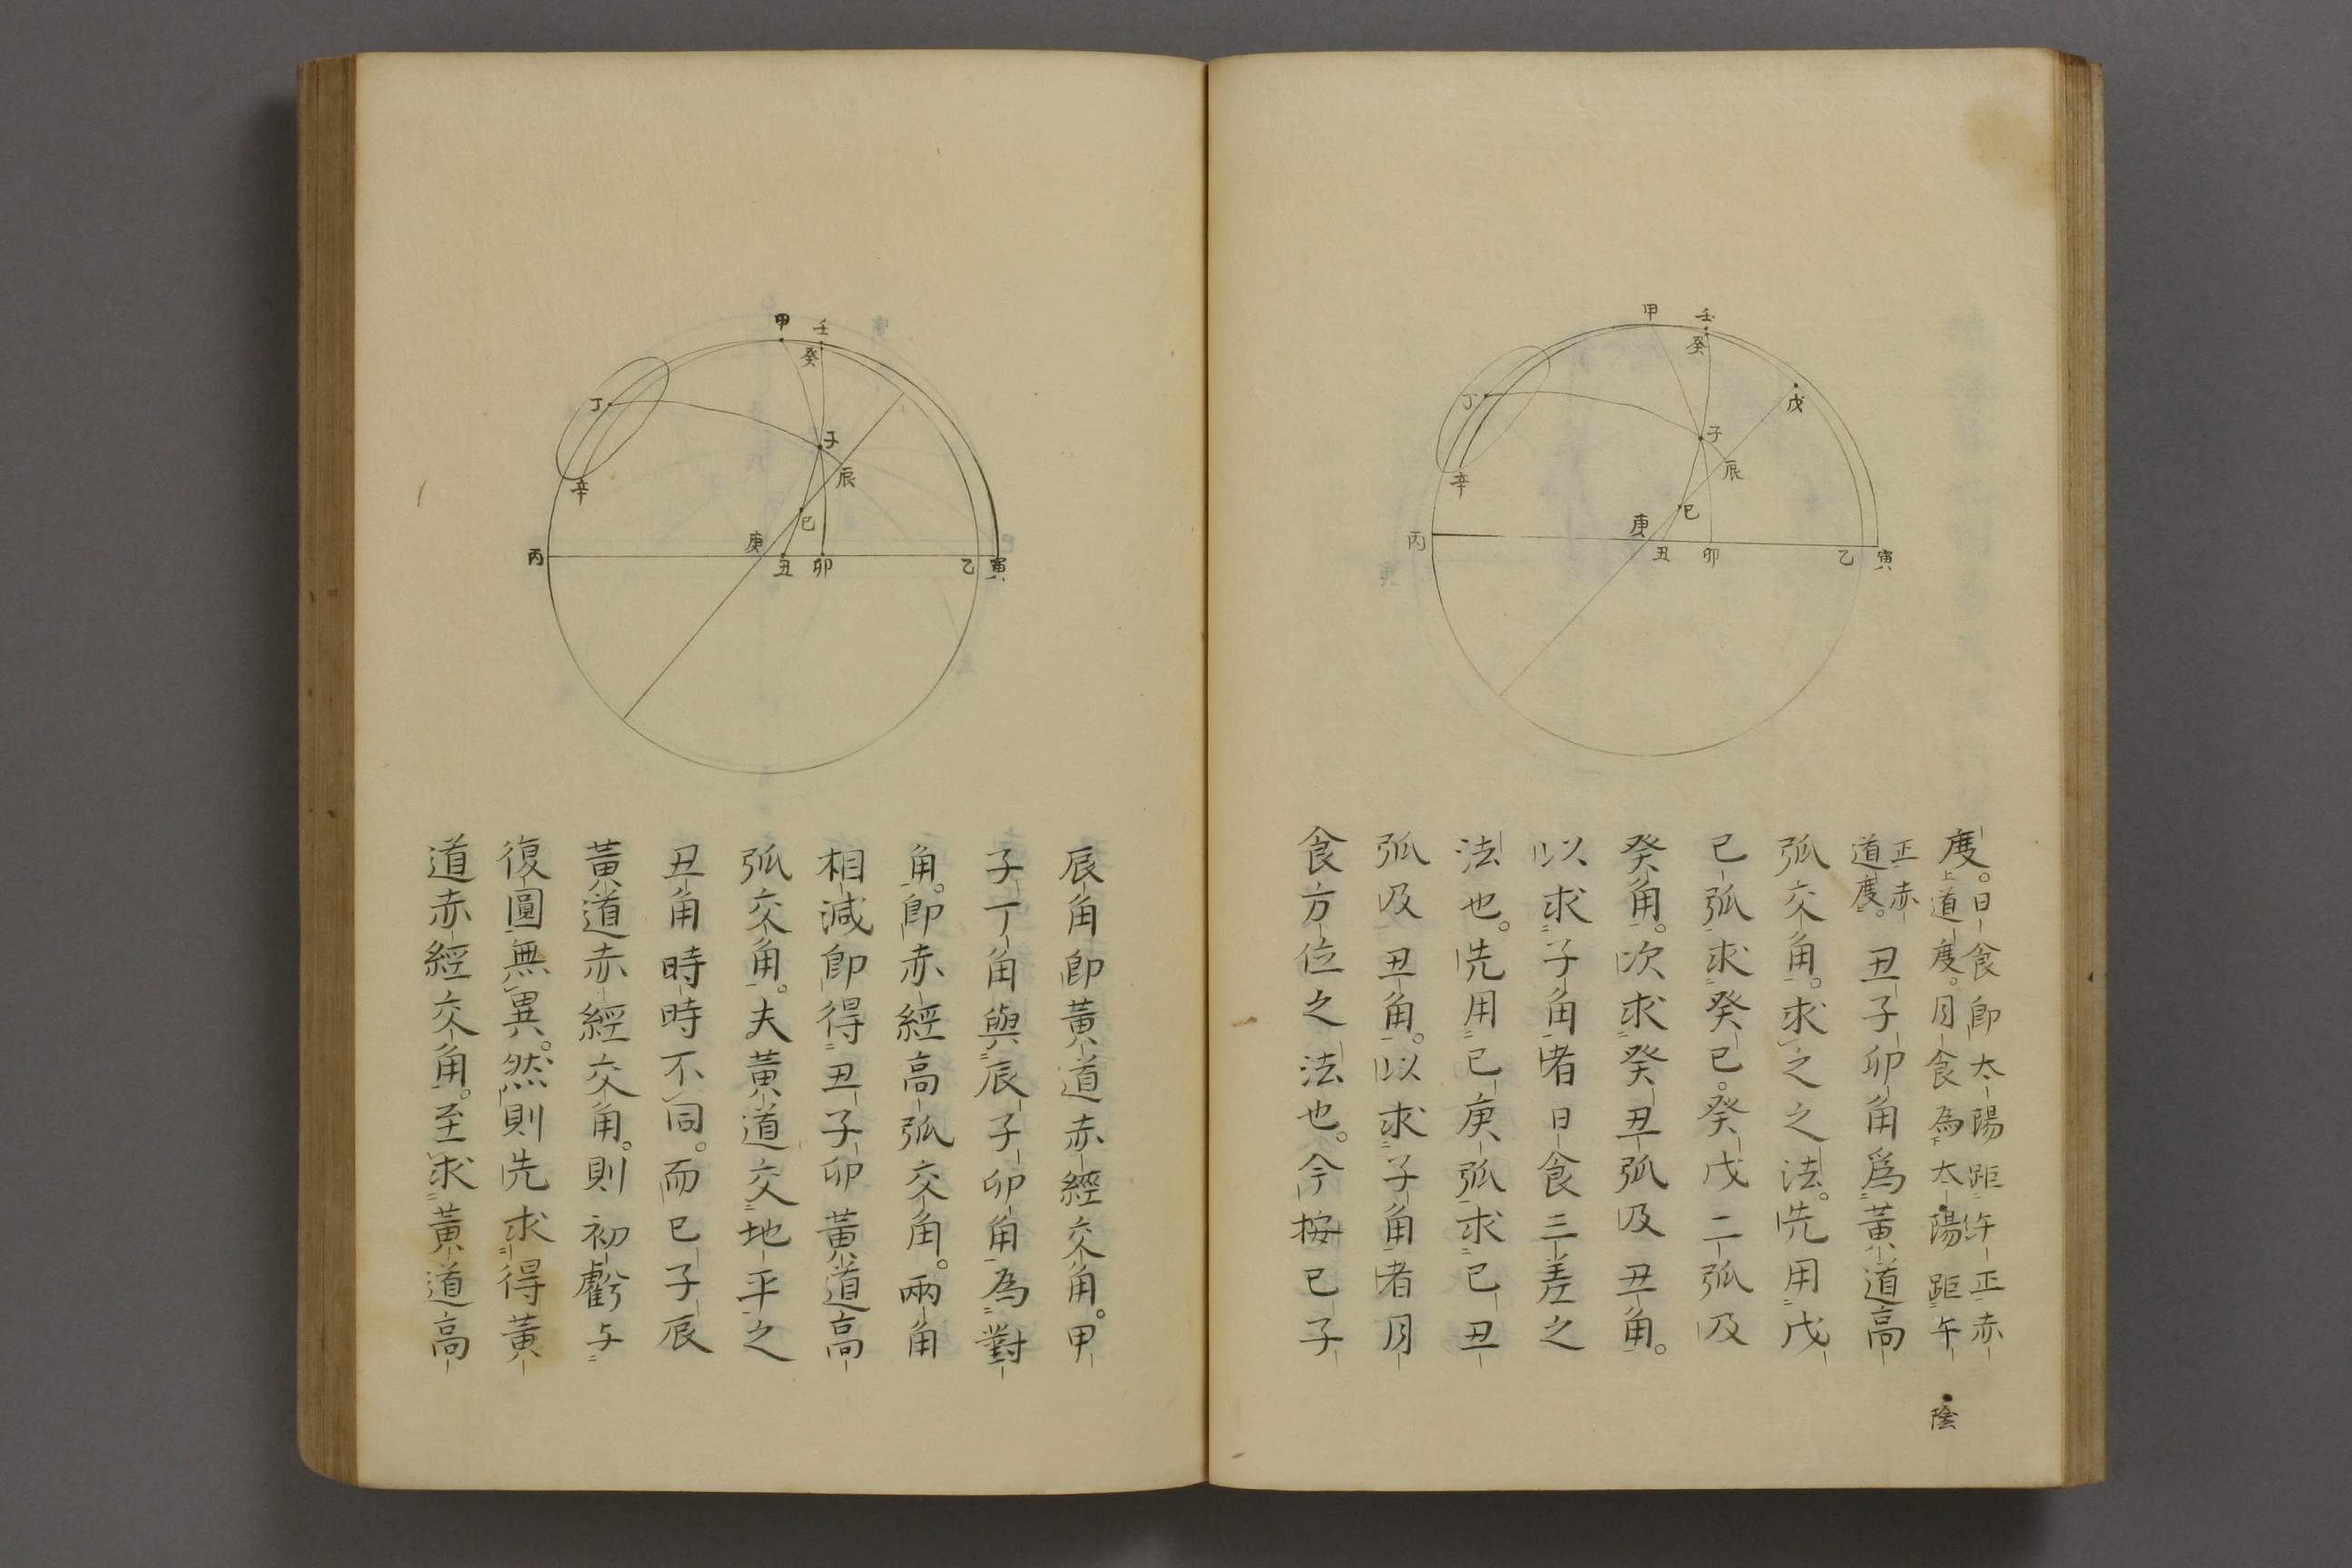 甲
壬
癸
戊
丁
子
辰
辛
巳
庚
丙
丑
卯
乙
寅
度。日食即太陽距午正赤
道度。月食為太陽距午
正赤
道度。丑子卯角爲黃道高
弧交角。求之之法。先用戊
巳弧求癸巳。癸戊二弧及
癸角。次求癸丑弧及丑角。
以求子角者日食三差之
法也。先用巳庚弧求巳丑
弧及丑角。以求子角者月
食方位之法也。今按巳子
陰
甲
壬
癸
丁
子
辰
辛
巳
庚
丙
丑
卯
乙
寅
辰角即黃道赤經交角。甲
子丁角與辰子卯角為對
角。即赤經高弧交角。兩角
相減即得丑子卯黃道高
弧交角。夫黃道交地平之
丑角時時不同。而巳子辰
黃道赤經交角。則初虧与
復圓無異。然則先求得黃
道赤經交角。至求黃道高